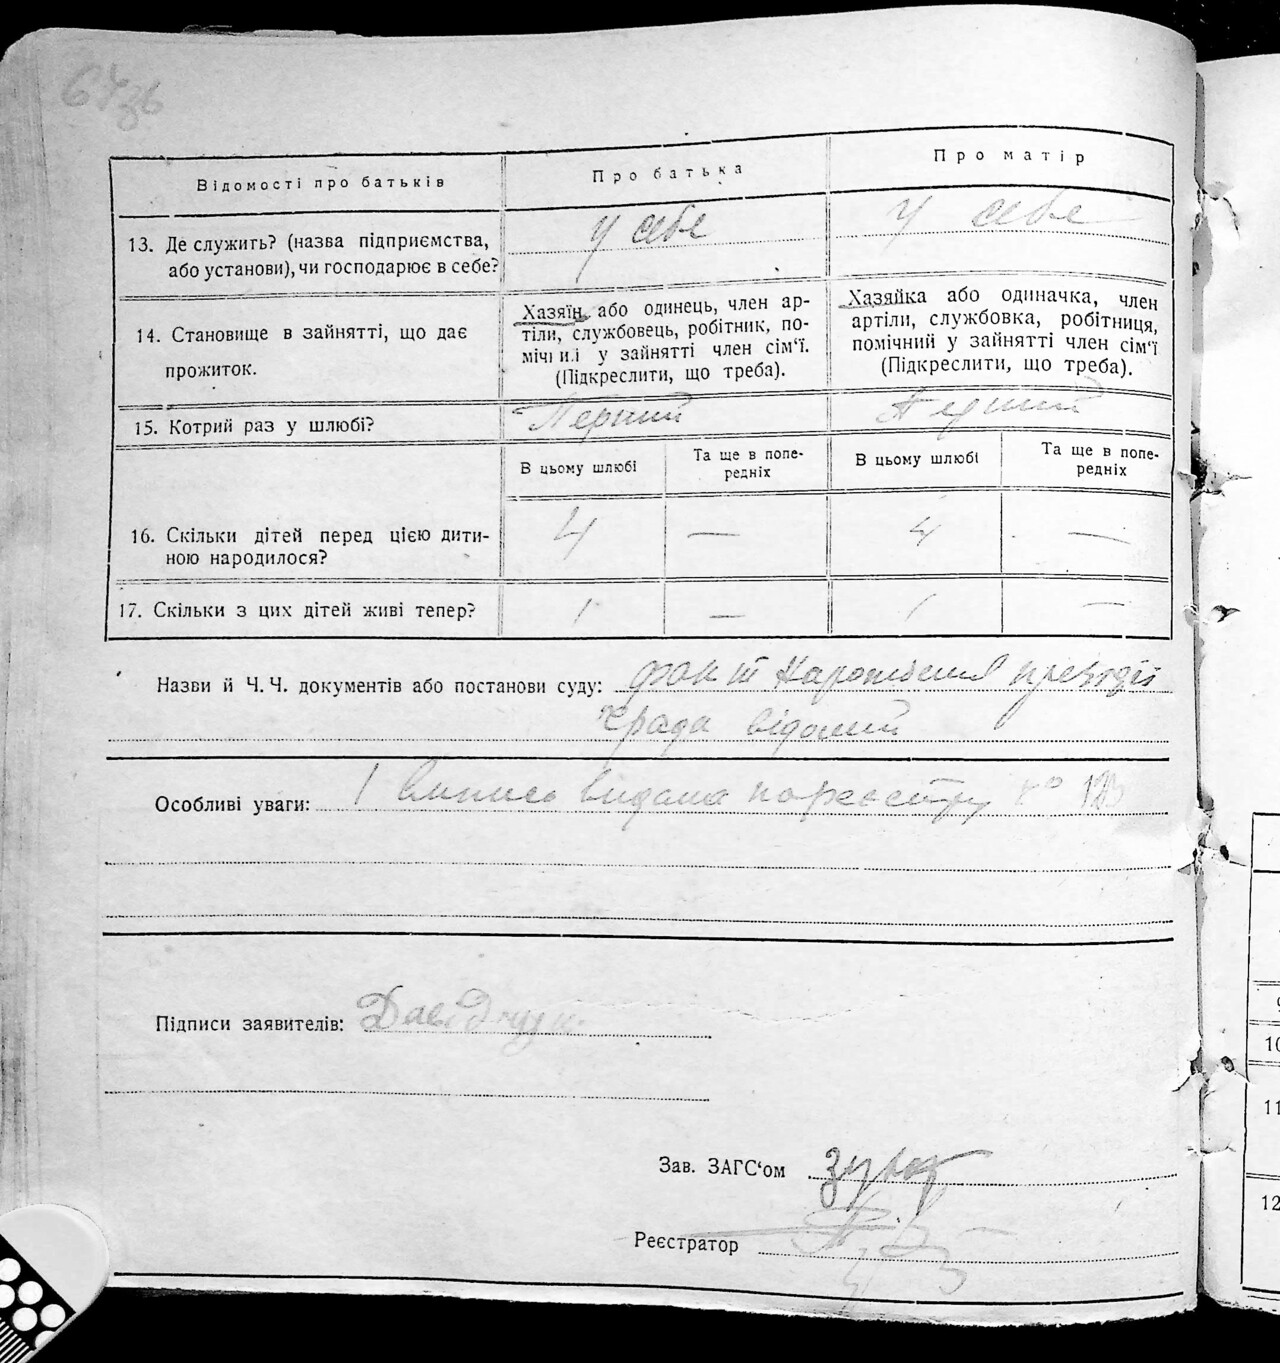 Відомості про батьків
Про батька
Про матір
13. Де служить? (назва підприємства,
або установи), чи господарює в себе?
у себе
у себе
14. Становище в зайнятті, що дає
прожиток.
Хазяїн або одинець, член ар-
тіли, службовець, робітник, по-
мічний у зайнятті член сім‘ї.
(Підкреслити, що треба).
Хазяйка або одиначка, член
артіли, службовка, робітниця,
помічний у зайнятті член сім‘ї
(Підкреслити, що треба).
15. Котрий раз у шлюбі?
Перший
Перший
В цьому шлюбі
Та ще в попе-
редніх
В цьому шлюбі
Та ще в попе-
редніх
16. Скільки дітей перед цією дити-
ною народилося?
4
—
4
—
17. Скільки з цих дітей живі тепер?
1
—
1
—
Назви й Ч. Ч. документів або постанови суду: факт народження президії
відомий
Особливі уваги: 1 випись видана по реєстру № 123
Підписи заявителів:
Зав. ЗАГС‘ом
Реєстратор
9
10
11
12